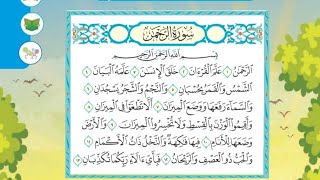 سُورَةُ الرَّحْمَٰن
بِسْمِ اللَّهِ الرَّحْمَٰنِ الرَّحِيمِ
الرَّحْمَٰنُ ١ عَلَّمَ الْقُرْءَانَ ٢ خَلَقَ الْإِنسَٰنَ ٣ عَلَّمَهُ الْبَيَانَ ٤
الشَّمْسُ وَالْقَمَرُ بِحُسْبَانٍ ٥ وَالنَّجْمُ وَالشَّجَرُ يَسْجُدَانِ ٦
وَالسَّمَاءَ رَفَعَهَا وَوَضَعَ الْمِيزَانَ ٧ أَلَّا تَطْغَوْا فِي الْمِيزَانِ ٨
وَأَقِيمُوا الْوَزْنَ بِالْقِسْطِ وَلَا تُخْسِرُوا الْمِيزَانَ ٩ وَالْأَرْضَ
وَضَعَهَا لِلْأَنَامِ ١٠ فِيهَا فَٰكِهَةٌ وَالنَّخْلُ ذَاتُ الْأَكْمَامِ ١١
وَالْحَبُّ ذُو الْعَصْفِ وَالرَّيْحَانُ ١٢ فَبِأَيِّ ءَالَاءِ رَبِّكُمَا تُكَذِّبَانِ ١٣